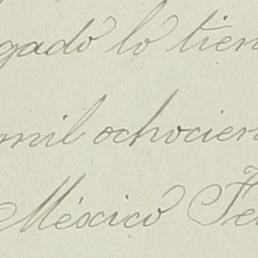 gado lo tien
mil ochocien
México Fe